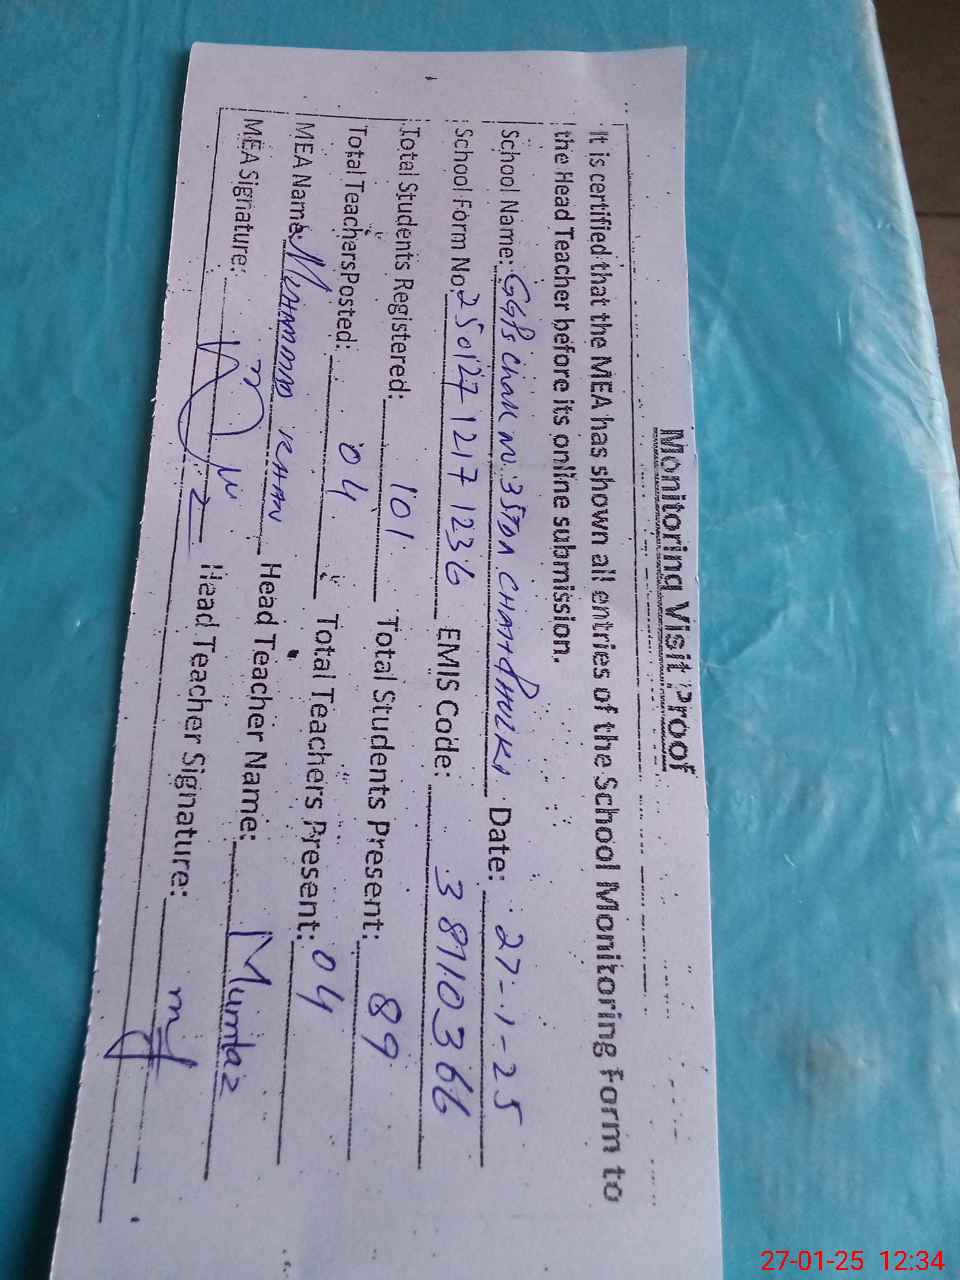 Monitoring Visit Proof
It is certified that the MEA has shown all entries of the School Monitoring Form to
the Head Teacher before its online submission.
School Name: GGPS Chak No. 35TDA CHATTA Date: 27-1-25
School Form No: 250127 1217 1236 EMIS Code: 38110366
Total Students Registered: 101 Total Students Present: 89
Total Teachers Posted: 04 Total Teachers Present: 04
MEA Name: MUHAMMAD KHAN Head Teacher Name: Mumtaz
MEA Signature: Head Teacher Signature:
27-01-25 12:34